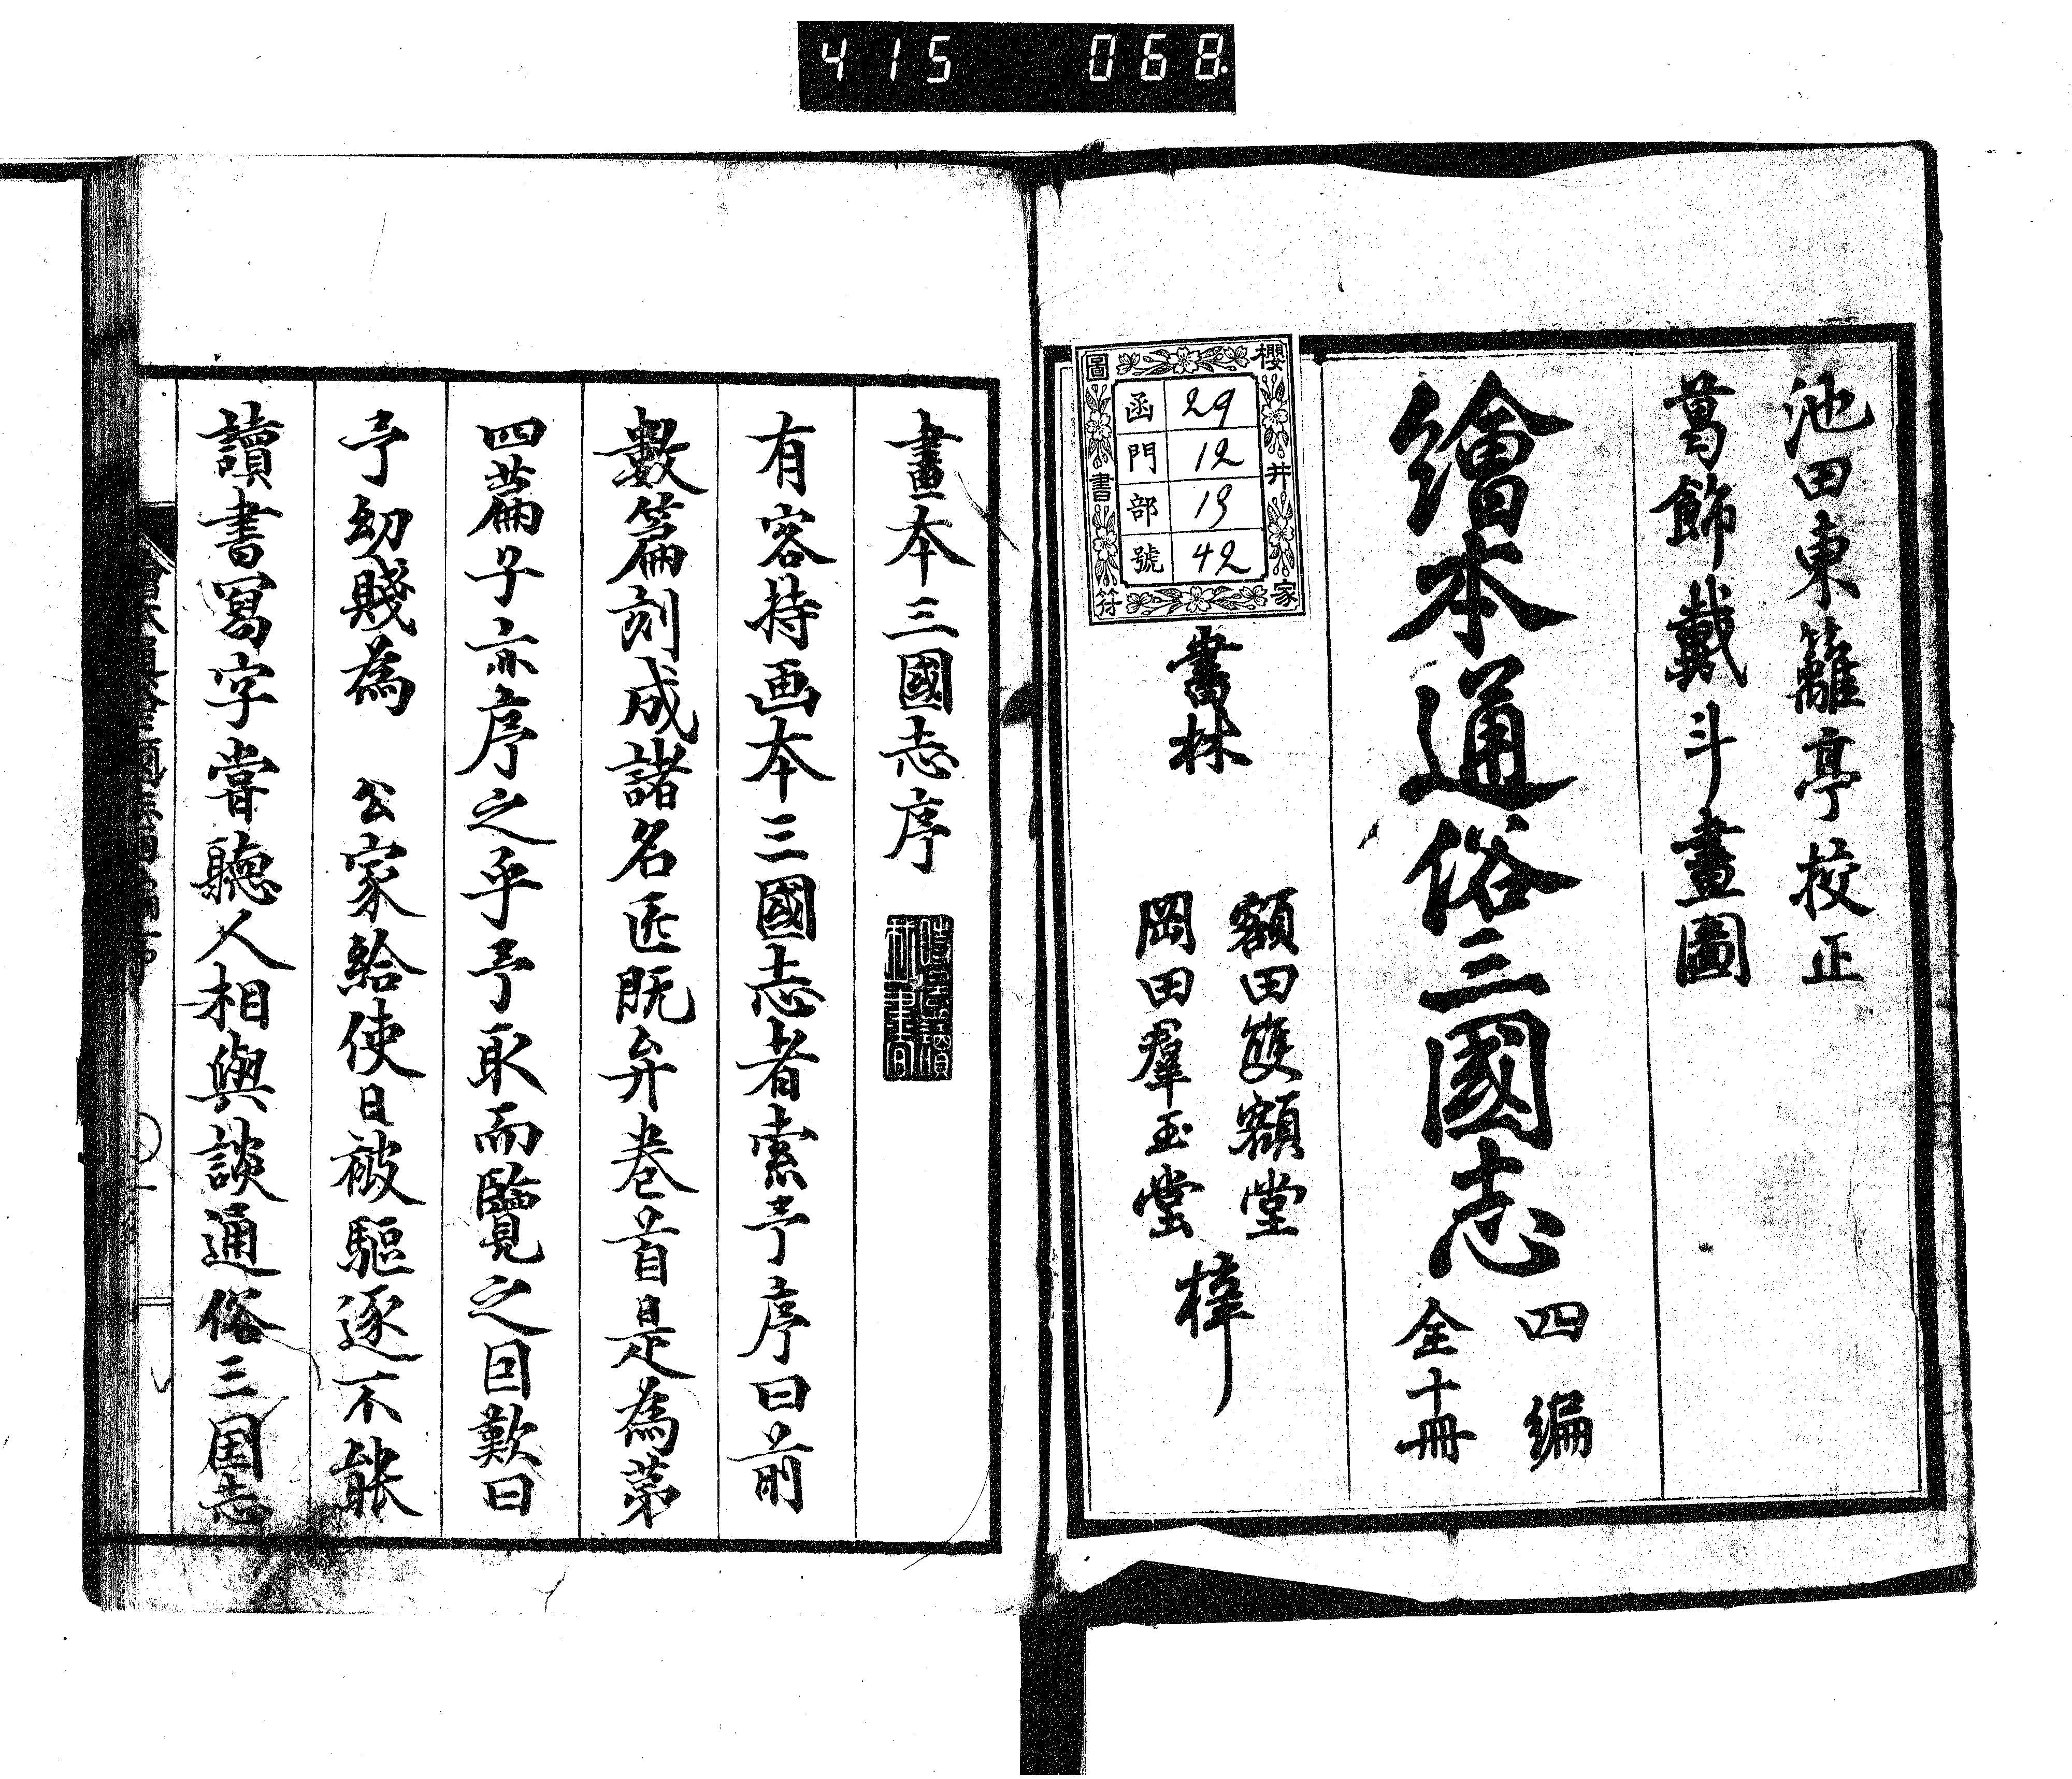 415 068
池田東籬亭挍正
葛飾戴斗畫圖
繪本通俗三國志
四編
全十冊
書林
額田雙額堂
岡田羣玉堂
梓
櫻井家
圖書符
函 29
門 12
部 13
號 42
畫本三國志序
有客持画本三國志者索予序曰前
數篇刻成諸名匠既弁巻首是為苐
四篇子亦序之乎予取而覽之因歎曰
予幼賤為 公家給使日被驅逐不能
讀書寫字嘗聽人相與談通俗三国志